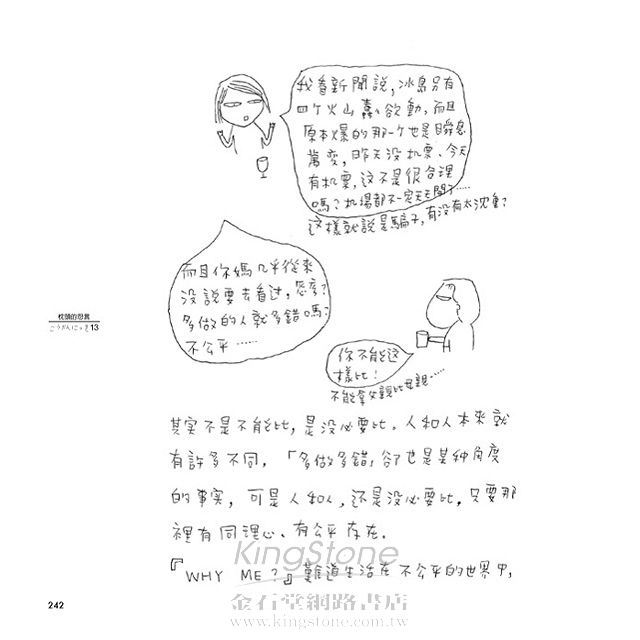 我看新聞說,冰島另有
四个火山蠢欲動,而且
原本爆的那一个也是瞬息
萬变,昨天没机票、今天
有机票,这不是很合理
嗎?机場都不一定天天開了……
这樣就說是騙子,有没有太沈重?
而且你媽几乎從來
没說要去看过,怎麼?
多做的人就多錯嗎?
不公平……
枕頭的怨農
こうざんにっき13
你不能这
樣比!
不能拿父親比母親……
其实不是不能比,是没必要比。人和人本來就
有許多不同,「多做多錯」卻也是某种角度
的事实,可是人和人,还是没必要比,只要那
裡有同理心、有公平存在.
『WHY ME?』難道生活在不公平的世界中,
242
KingStone
金石堂網路書店
www.kingstone.com.tw